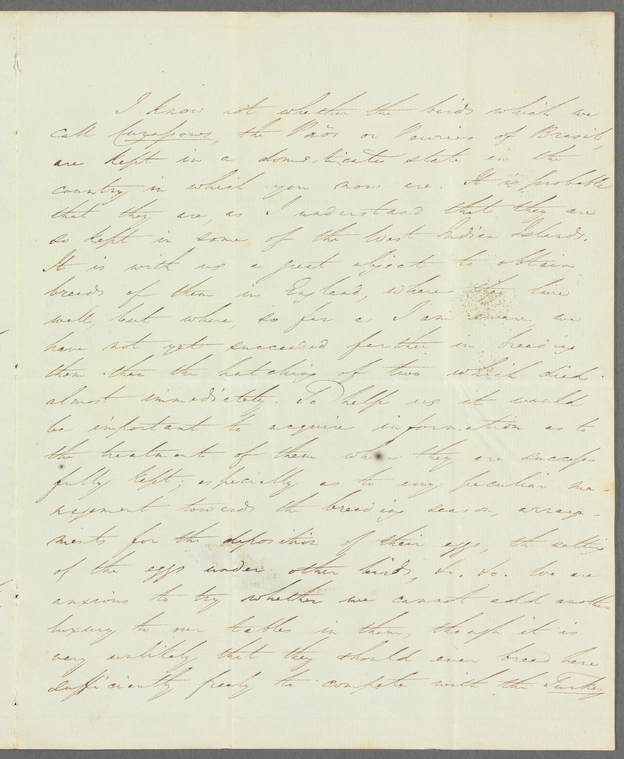 I know not whether the birds which we
call Curassows, the Paös or Powries of Brasil,
are kept in a domesticated state in the
country in which you now are. It is probable
that they are, as I understand that they are
so kept in some of the West Indian Islands.
It is with us a great object to obtain
breeds of them in England, where they live
well, but where so far as I am aware, we
have not yet succeeded farther in breeding
them than the hatching of two which died
almost immediately. To help us it would
be important to acquire information as to
the treatment of them when they are success-
fully kept; especially as to any peculiar ma-
nagement towards the breeding season, arrange-
ments for the deposition of their eggs, the setting
of the eggs under other birds, &c. &c. We are
anxious to try whether we cannot add another
luxury to our tables in them, though it is
very unlikely that they should ever breed here
sufficiently freely to compete with the Turkey